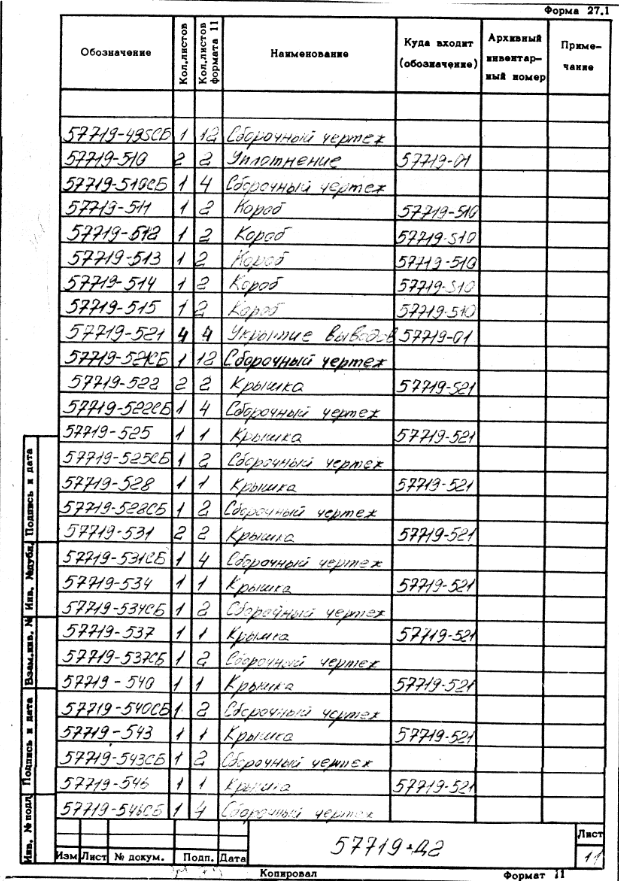 Форма 27.1
Обозначение Кол.листов Кол.листов формата 11 Наименование Куда входит (обозначение) Архивный инвентар-ный номер Приме-чание
57719-495СБ 1 12 Сборочный чертеж
57719-510 2 2 Уплотнение 57719-01
57719-510СБ 1 4 Сборочный чертеж
57719-511 1 2 Короб 57719-510
57719-512 1 2 Короб 57719-510
57719-513 1 2 Короб 57719-510
57719-514 1 2 Короб 57719-510
57719-515 1 2 Короб 57719-510
57719-521 4 4 Укрытие выводов 57719-01
57719-521СБ 1 12 Сборочный чертеж
57719-522 2 2 Крышка 57719-521
57719-522СБ 1 4 Сборочный чертеж
57719-525 1 1 Крышка 57719-521
57719-525СБ 1 2 Сборочный чертеж
57719-528 1 1 Крышка 57719-521
57719-528СБ 1 2 Сборочный чертеж
57719-531 2 2 Крышка 57719-521
57719-531СБ 1 4 Сборочный чертеж
57719-534 1 1 Крышка 57719-521
57719-534СБ 1 2 Сборочный чертеж
57719-537 1 1 Крышка 57719-521
57719-537СБ 1 2 Сборочный чертеж
57719-540 1 1 Крышка 57719-521
57719-540СБ 1 2 Сборочный чертеж
57719-543 1 1 Крышка 57719-521
57719-543СБ 1 2 Сборочный чертеж
57719-546 1 1 Крышка 57719-521
57719-546СБ 1 4 Сборочный чертеж
Инв. № подл Подпись и дата Взам.инв. № Инв. №дубл. Подпись и дата
Изм Лист № докум. Подп. Дата
57719-Д2
Лист
11
Копировал Формат 11